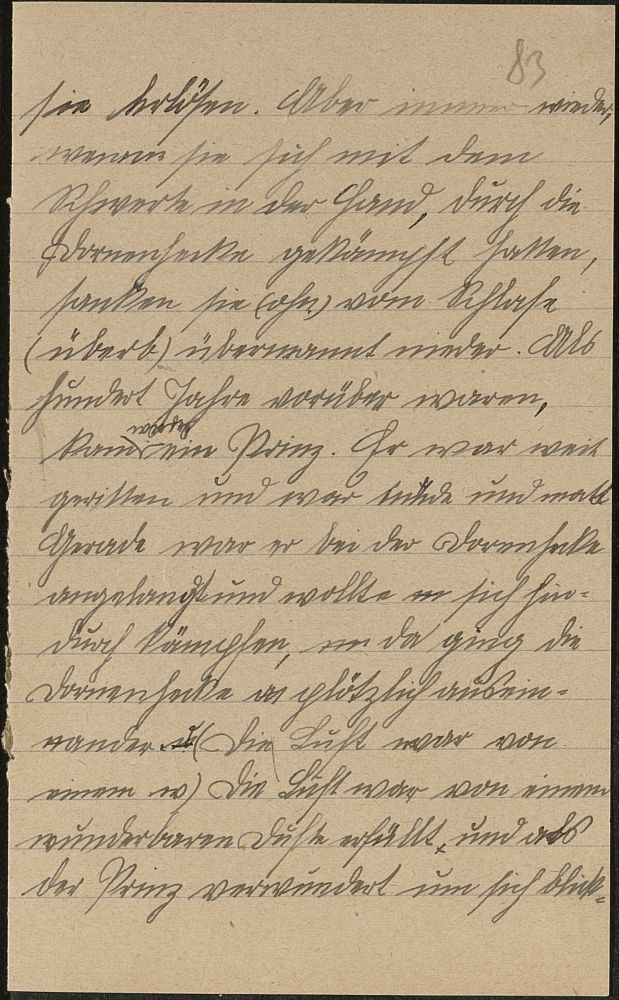 83
sie erlösen. Aber immer wieder,
wenn sie sich mit dem
Schwerte in der Hand, durch die
Dornenhecke gekämpft hatten,
sanken sie (ohn) vom Schlafe
(überb) übermannt nieder. Als
hundert Jahre vorüber waren,
wieder
kam ein Prinz. Er war weit
geritten und war müde und matt
Gerade war er bei der Dornenhecke
angelangt und wollte sich hin-
durch kämpfen, da ging die
Dornenhecke plötzlich ausein-
nander. (Die Luft war von
einem w) Die Luft war von einem
wunderbaren Dufte erfüllt, und als
der Prinz verwundert um sich blick-